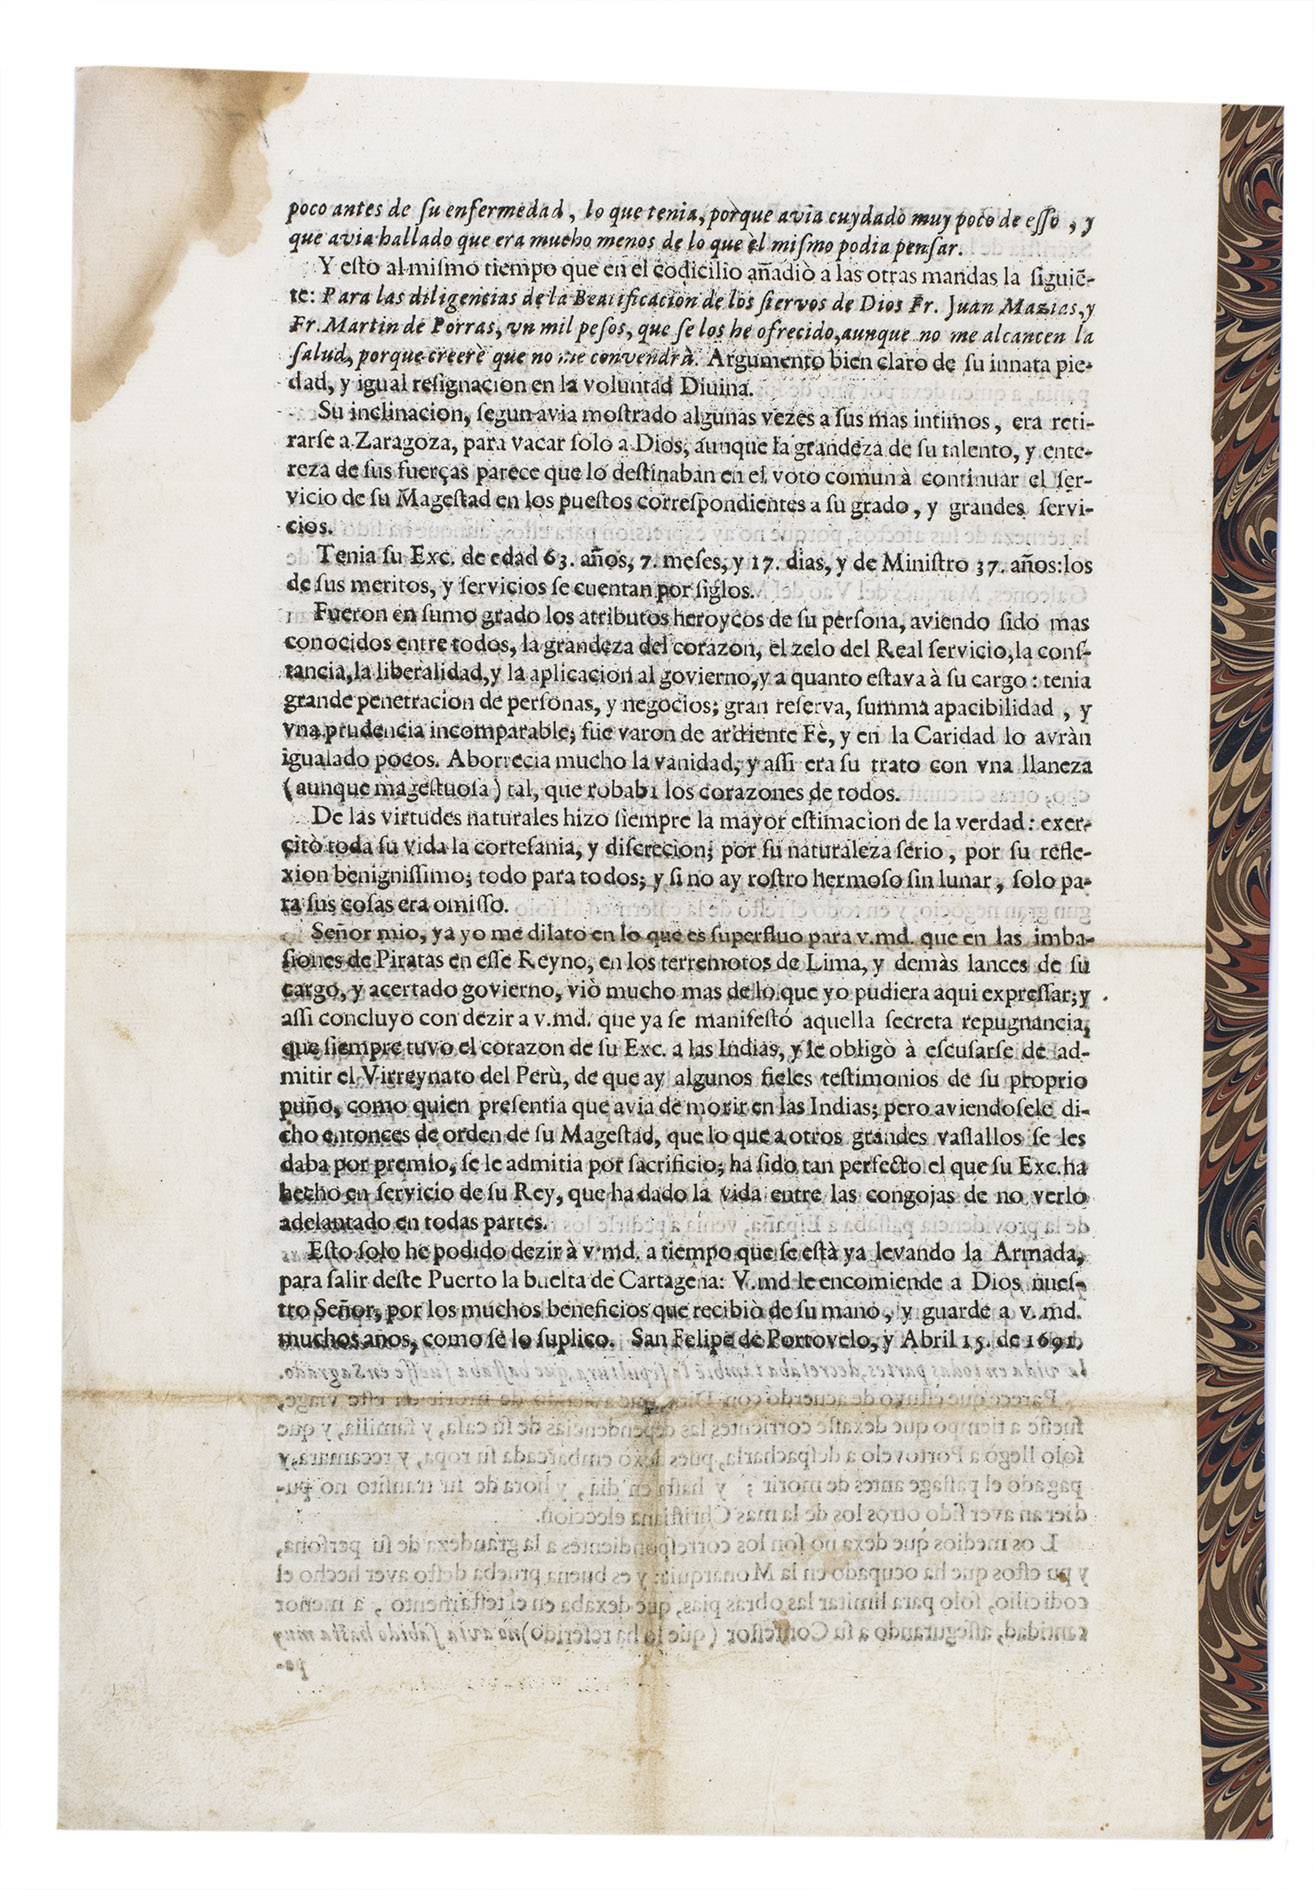 poco antes de su enfermedad, lo que tenia, porque avia cuydado muy poco de esso, y
que avia hallado que era mucho menos de lo que èl mismo podia pensar.
Y esto al mismo tiempo que en el codicilio añadiò a las otras mandas la siguiẽ-
te: Para las diligencias de la Beatificacion de los siervos de Dios Fr. Juan Mazias, y
Fr. Martin de Porras, vn mil pesos, que se los he ofrecido, aunque no me alcancen la
salud, porque creerè que no me convendrà. Argumento bien claro de su innata pie-
dad, y igual resignacion en la voluntad Divina.
Su inclinacion, segun avia mostrado algunas vezes a sus mas intimos, era reti-
rarse a Zaragoza, para vacar solo a Dios, aunque la grandeza de su talento, y ente-
reza de sus fuerças parece que lo destinaban en el voto comun à continuar el ser-
vicio de su Magestad en los puestos correspondientes a su grado, y grandes servi-
cios.
Tenia su Exc. de edad 63. años, 7. meses, y 17. dias, y de Ministro 37. años: los
de sus meritos, y servicios se cuentan por siglos.
Fueron en sumo grado los atributos heroycos de su persona, aviendo sido mas
conocidos entre todos, la grandeza del corazon, el zelo del Real servicio, la cons-
tancia, la liberalidad, y la aplicacion al govierno, y a quanto estava à su cargo: tenia
grande penetracion de personas, y negocios; gran reserva, summa apacibilidad, y
vna prudencia incomparable; fue varon de ardiente Fè, y en la Caridad lo avràn
igualado pocos. Aborrecia mucho la vanidad, y assi era su trato con vna llaneza
(aunque magestuosa) tal, que robaba los corazones de todos.
De las virtudes naturales hizo siempre la mayor estimacion de la verdad: exer-
citò toda su vida la cortesania, y discrecion; por su naturaleza serio, por su refle-
xion benignissimo; todo para todos; y si no ay rostro hermoso sin lunar, solo pa-
ra sus cosas era omisso.
Señor mio, ya yo me dilato en lo que es superfluo para v.md. que en las imba-
siones de Piratas en esse Reyno, en los terremotos de Lima, y demàs lances de su
cargo, y acertado govierno, viò mucho mas de lo que yo pudiera aqui expressar; y
assi concluyo con dezir a v.md. que ya se manifestó aquella secreta repugnancia,
que siempre tuvo el corazon de su Exc. a las Indias, y le obligò à escusarse de ad-
mitir el Virreynato del Perù, de que ay algunos fieles testimonios de su proprio
puño, como quien presentia que avia de morir en las Indias; pero aviendosele di-
cho entonces de orden de su Magestad, que lo que a otros grandes vassallos se les
daba por premio, se le admitia por sacrificio; ha sido tan perfecto el que su Exc. ha
hecho en servicio de su Rey, que ha dado la vida entre las congojas de no verlo
adelantado en todas partes.
Esto solo he podido dezir à v.md. a tiempo que se està ya levando la Armada,
para salir deste Puerto la buelta de Cartagena: V.md le encomiende a Dios nues-
tro Señor, por los muchos beneficios que recibiò de su mano, y guarde a v.md.
muchos años, como se lo suplico. San Felipe de Portovelo, y Abril 15. de 1691.